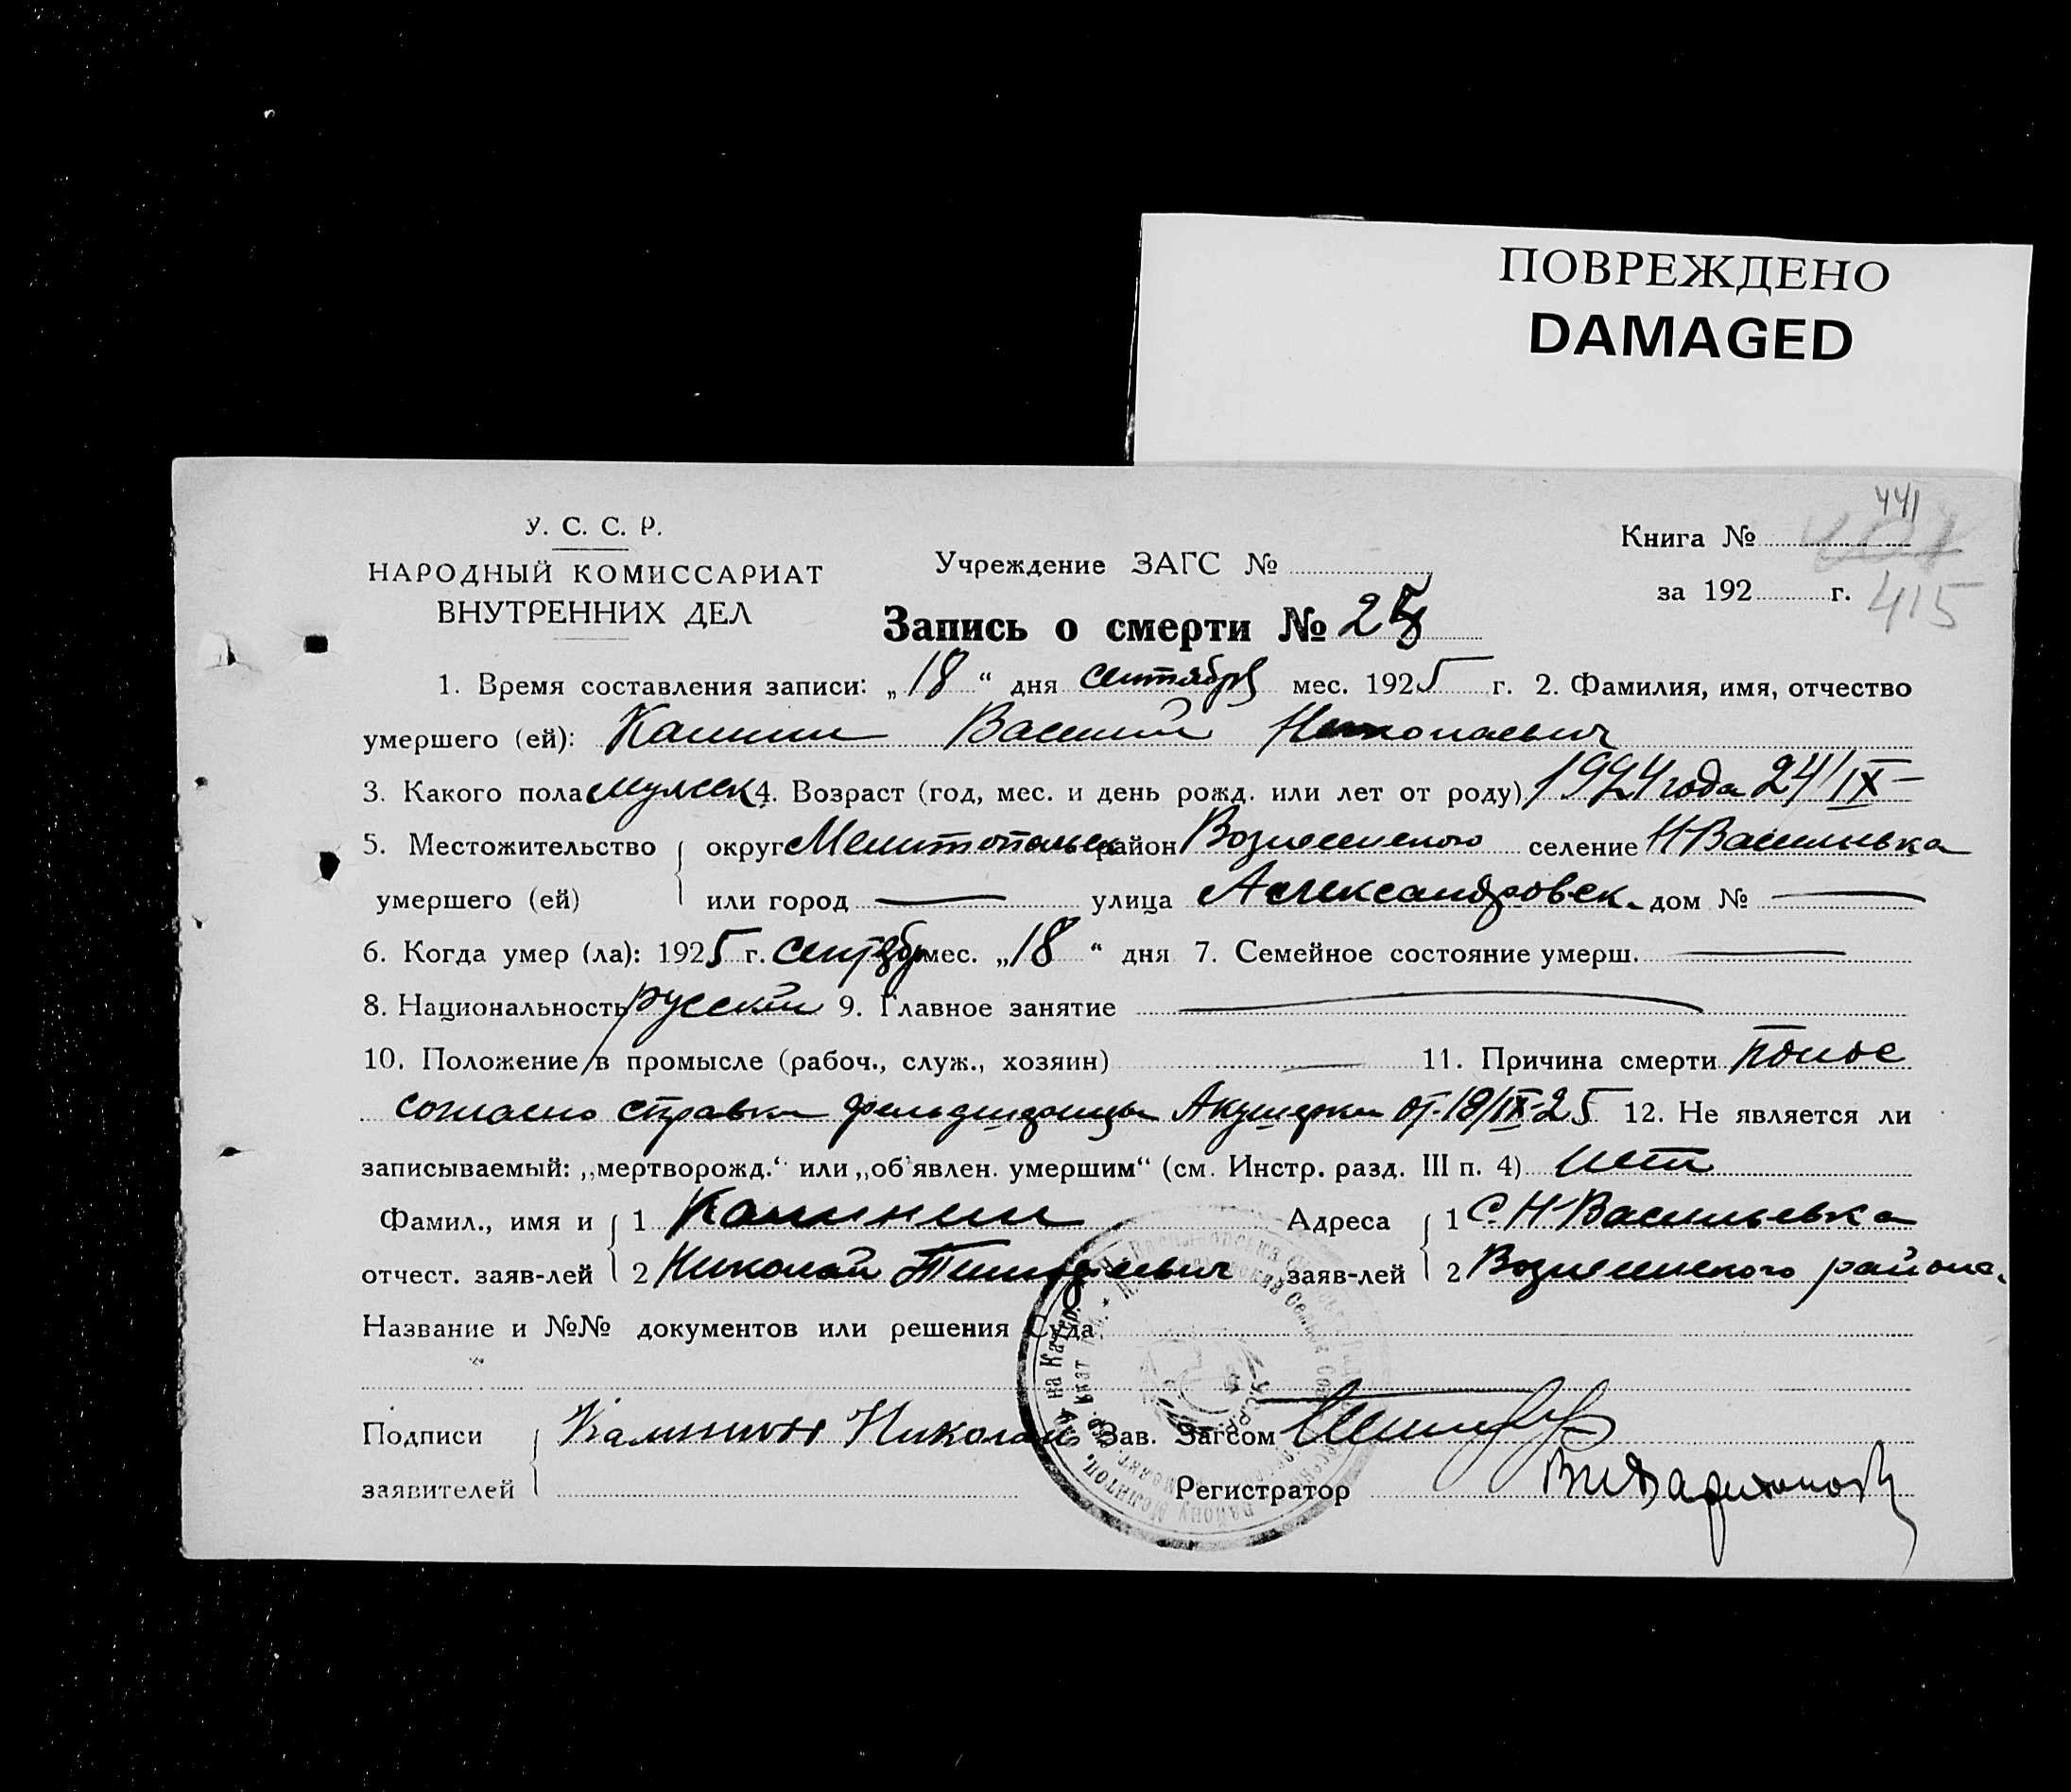 ПОВРЕЖДЕНО
DAMAGED
441
У. С. С. Р.
НАРОДНЫЙ КОМИССАРИАТ
ВНУТРЕННИХ ДЕЛ
Учреждение ЗАГС №
Книга №
за 192 г. 415
Запись о смерти № 25
1. Время составления записи: „18“ дня сентября мес. 1925 г. 2. Фамилия, имя, отчество
умершего (ей): Калинин Василий Николаевич
3. Какого пола мужск 4. Возраст (год, мес. и день рожд. или лет от роду) 1924 года 24/IX-
5. Местожительство умершего (ей) округ Мелитопольск район Вознесенского селение Н-Васильвка
или город — улица Александровск. дом № —
6. Когда умер (ла): 1925 г. сентябр мес. „18“ дня 7. Семейное состояние умерш. —
8. Национальность русский 9. Главное занятие —
10. Положение в промысле (рабоч., служ., хозяин) — 11. Причина смерти понос
согласно справки Акушерки от 18/IX-25 12. Не является ли
записываемый: „мертворожд.“ или „об'явлен. умершим“ (см. Инстр. разд. III п. 4) нет
Фамил., имя и отчест. заяв-лей 1 Калинин Адреса заяв-лей 1 С. Н-Васильевка
2 Николай 2 Вознесенского района.
Название и №№ документов или решения Суда
Подписи заявителей Калинин Николай Зав. Загсом
Регистратор